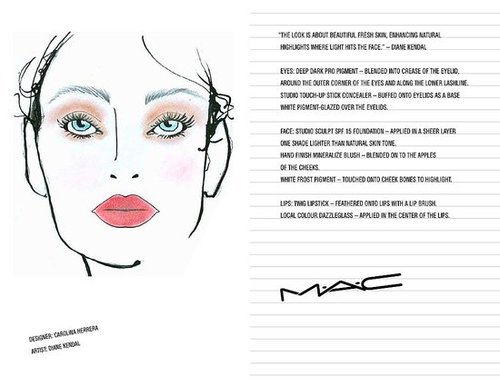 "THE LOOK IS ABOUT BEAUTIFUL FRESH SKIN, ENHANCING NATURAL
HIGHLIGHTS WHERE LIGHT HITS THE FACE." – DIANE KENDAL
EYES: DEEP DARK PRO PIGMENT – BLENDED INTO CREASE OF THE EYELID,
AROUND THE OUTER CORNER OF THE EYES AND ALONG THE LOWER LASHLINE.
STUDIO TOUCH-UP STICK CONCEALER – BUFFED ONTO EYELIDS AS A BASE
WHITE PIGMENT-GLAZED OVER THE EYELIDS.
FACE: STUDIO SCULPT SPF 15 FOUNDATION – APPLIED IN A SHEER LAYER
ONE SHADE LIGHTER THAN NATURAL SKIN TONE.
HAND FINISH MINERALIZE BLUSH – BLENDED ON TO THE APPLES
OF THE CHEEKS.
WHITE FROST PIGMENT – TOUCHED ONTO CHEEK BONES TO HIGHLIGHT.
LIPS: TWIG LIPSTICK – FEATHERED ONTO LIPS WITH A LIP BRUSH.
LOCAL COLOUR DAZZLEGLASS – APPLIED IN THE CENTER OF THE LIPS.
M·A·C
DESIGNER: CAROLINA HERRERA
ARTIST: DIANE KENDAL